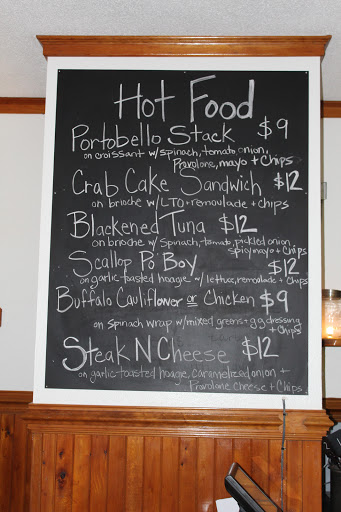 Hot Food
Portobello Stack $9
on croissant w/spinach, tomato, onion,
Provolone, mayo + Chips
Crab Cake Sandwich $12
on brioche w/LTO + remoulade + Chips
Blackened Tuna $12
on brioche w/ Spinach, tomato, pickled onion
spicy mayo + Chips
Scallop Po' Boy $12
on garlic-toasted hoagie w/ lettuce, remolade + Chips
Buffalo Cauliflower or Chicken $9
on Spinach wrap w/mixed greens + gg dressing
+ Chips
Steak N Cheese $12
on garlic-toasted hoagie, caramelized onion +
Provolone Cheese + Chips